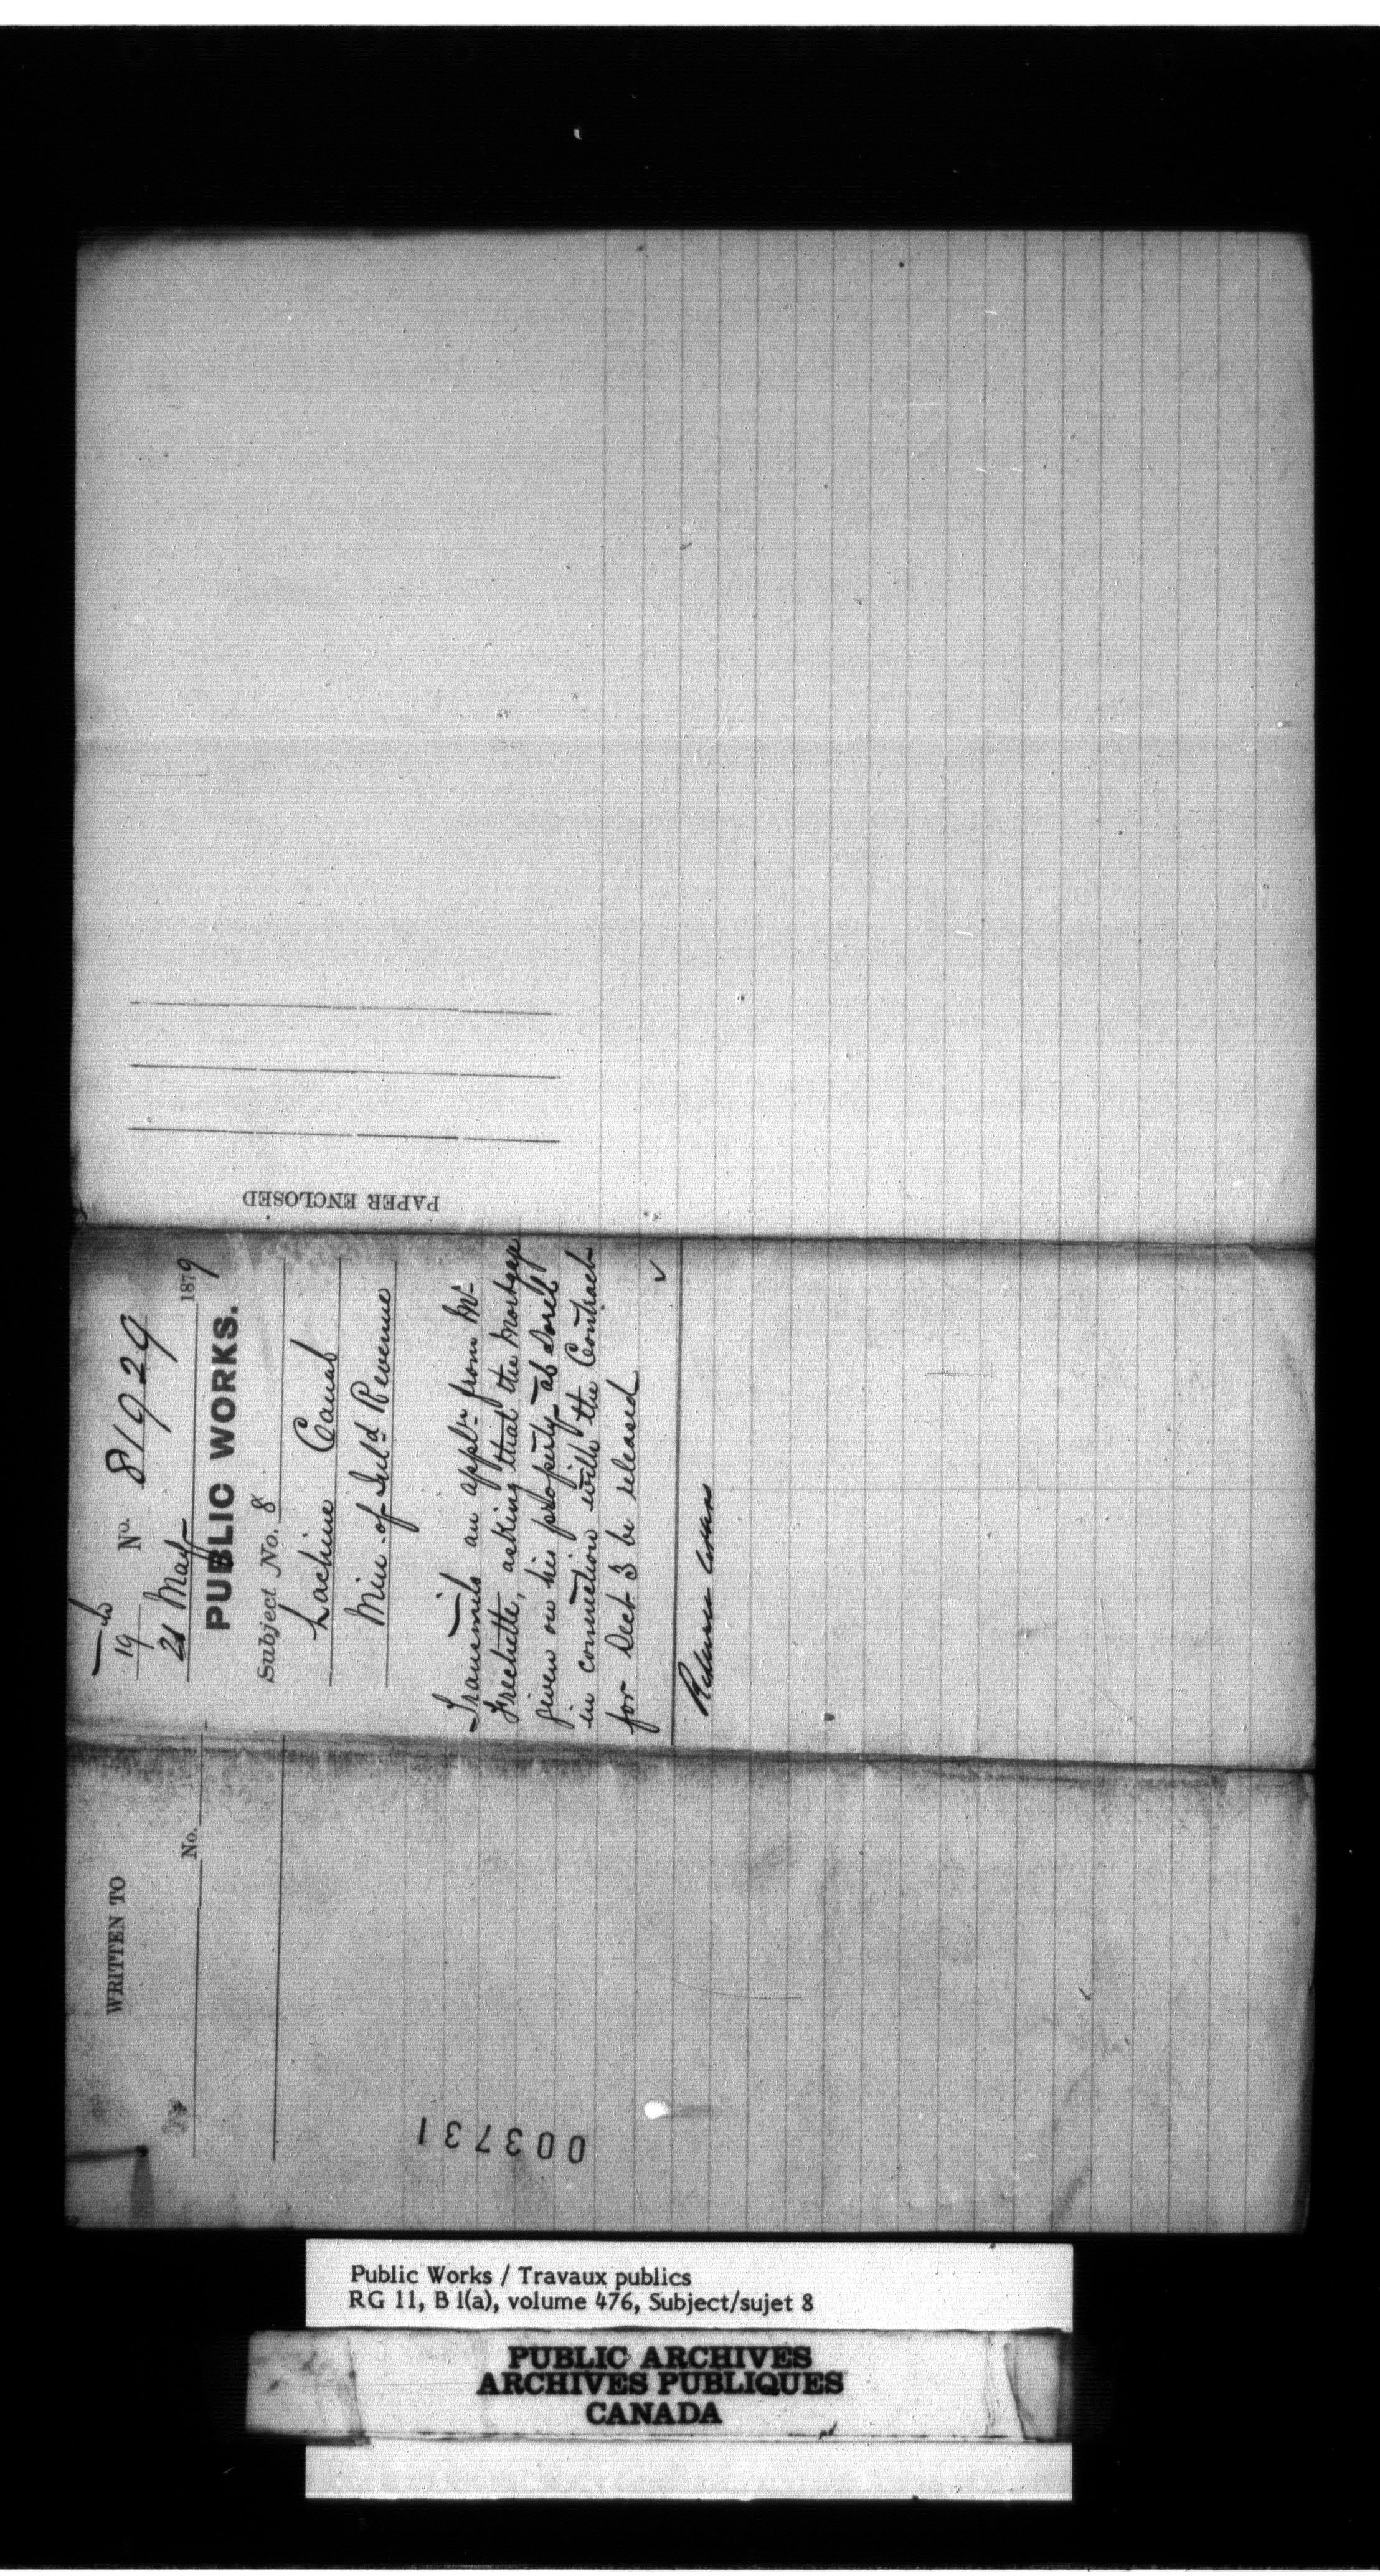 19 No. 81929
21 May 1879
PUBLIC WORKS.
Subject No. 8
Lachine Canal
Min. of Inld Revenue
Transmits an appln from Mr
Frechette, asking that the Mortgage
given on his property at Sorel
in connection with the Contract
for Sect 3 be released
PAPER ENCLOSED
WRITTEN TO
No.
003731
Public Works / Travaux publics
RG 11, B 1(a), volume 476, Subject/sujet 8
PUBLIC ARCHIVES
ARCHIVES PUBLIQUES
CANADA